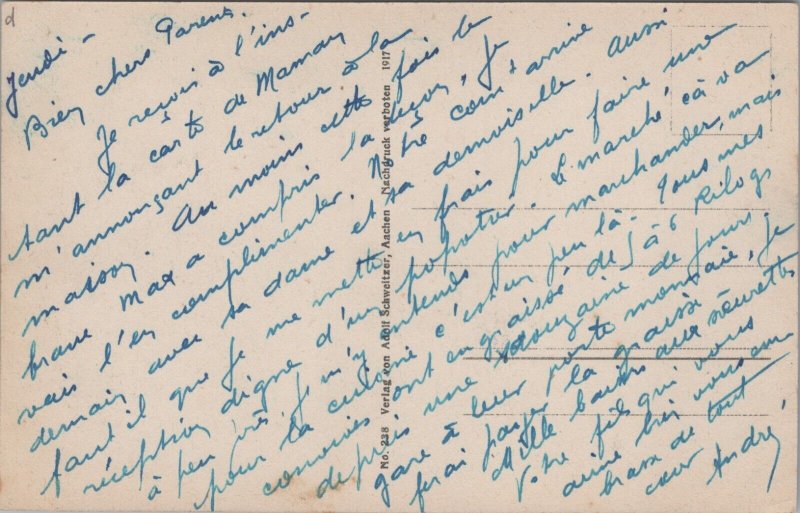 Jeudi -
Bien chers Parents.
Je reçois à l'ins-
tant la carte de Maman
m'annonçant le retour à la
maison. Au moins cette fois le
brave Max a compris la leçon, je
vais l'en complimenter. Notre com^t arrive
demain avec sa dame et sa demoiselle. Aussi
faut il que je me mette en frais pour faire une
réception digne d'un popotier. Le marché, çà va
à peu près, je m'y entends pour marchander, mais
pour la cuisine c'est un peu là. Tous mes
convives ont engraissé de 5 à 6 kilogs
depuis une douzaine de jours.
gare à leur porte monnaie, je
ferai payer la graisse.
Mille baisers aux soeurettes
Votre fils qui vous
aime bien vous em
brasse de tout
coeur André.
No. 238 Verlag von Adolf Schweitzer, Aachen Nachdruck verboten 1917
d